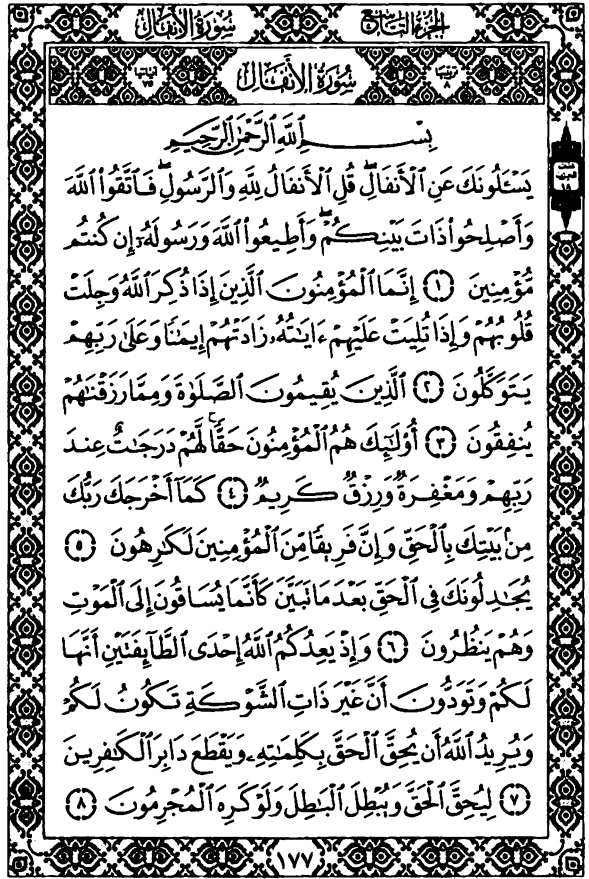 سُورَةُ الأَنفَال
الجُزْءُ التَّاسِع
سُورَةُ الأَنفَالِ
ترتيبها ٨
آياتها ٧٥
بِسْمِ ٱللَّهِ ٱلرَّحْمَٰنِ ٱلرَّحِيمِ
يَسْـَٔلُونَكَ عَنِ ٱلْأَنفَالِۖ قُلِ ٱلْأَنفَالُ لِلَّهِ وَٱلرَّسُولِۖ فَٱتَّقُوا۟ ٱللَّهَ
وَأَصْلِحُوا۟ ذَاتَ بَيْنِكُمْۖ وَأَطِيعُوا۟ ٱللَّهَ وَرَسُولَهُۥٓ إِن كُنتُم
مُّؤْمِنِينَ ۝١ إِنَّمَا ٱلْمُؤْمِنُونَ ٱلَّذِينَ إِذَا ذُكِرَ ٱللَّهُ وَجِلَتْ
قُلُوبُهُمْ وَإِذَا تُلِيَتْ عَلَيْهِمْ ءَايَٰتُهُۥ زَادَتْهُمْ إِيمَٰنًا وَعَلَىٰ رَبِّهِمْ
يَتَوَكَّلُونَ ۝٢ ٱلَّذِينَ يُقِيمُونَ ٱلصَّلَوٰةَ وَمِمَّا رَزَقْنَٰهُمْ
يُنفِقُونَ ۝٣ أُو۟لَٰٓئِكَ هُمُ ٱلْمُؤْمِنُونَ حَقًّاۚ لَّهُمْ دَرَجَٰتٌ عِندَ
رَبِّهِمْ وَمَغْفِرَةٌ وَرِزْقٌ كَرِيمٌ ۝٤ كَمَآ أَخْرَجَكَ رَبُّكَ
مِنۢ بَيْتِكَ بِٱلْحَقِّ وَإِنَّ فَرِيقًا مِّنَ ٱلْمُؤْمِنِينَ لَكَٰرِهُونَ ۝٥
يُجَٰدِلُونَكَ فِى ٱلْحَقِّ بَعْدَ مَا تَبَيَّنَ كَأَنَّمَا يُسَاقُونَ إِلَى ٱلْمَوْتِ
وَهُمْ يَنظُرُونَ ۝٦ وَإِذْ يَعِدُكُمُ ٱللَّهُ إِحْدَى ٱلطَّآئِفَتَيْنِ أَنَّهَا
لَكُمْ وَتَوَدُّونَ أَنَّ غَيْرَ ذَاتِ ٱلشَّوْكَةِ تَكُونُ لَكُمْ
وَيُرِيدُ ٱللَّهُ أَن يُحِقَّ ٱلْحَقَّ بِكَلِمَٰتِهِۦ وَيَقْطَعَ دَابِرَ ٱلْكَٰفِرِينَ
۝٧ لِيُحِقَّ ٱلْحَقَّ وَيُبْطِلَ ٱلْبَٰطِلَ وَلَوْ كَرِهَ ٱلْمُجْرِمُونَ ۝٨
١٧٧